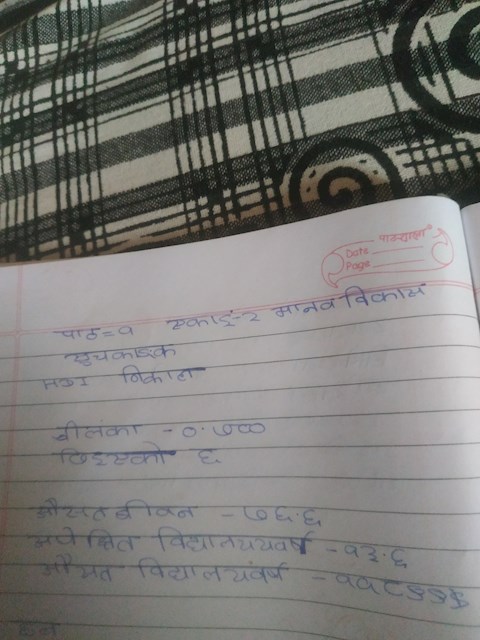 पाठशाला
Date
Page
पाठ=१ एकाइ-२ मानव विकास
सूचकाङ्क
निकाल
श्रीलंका - ०.७८०
६
औसत जीवन - ७६.६
अपेक्षित विद्यालयवर्ष - १३.६
औसत विद्यालयवर्ष -